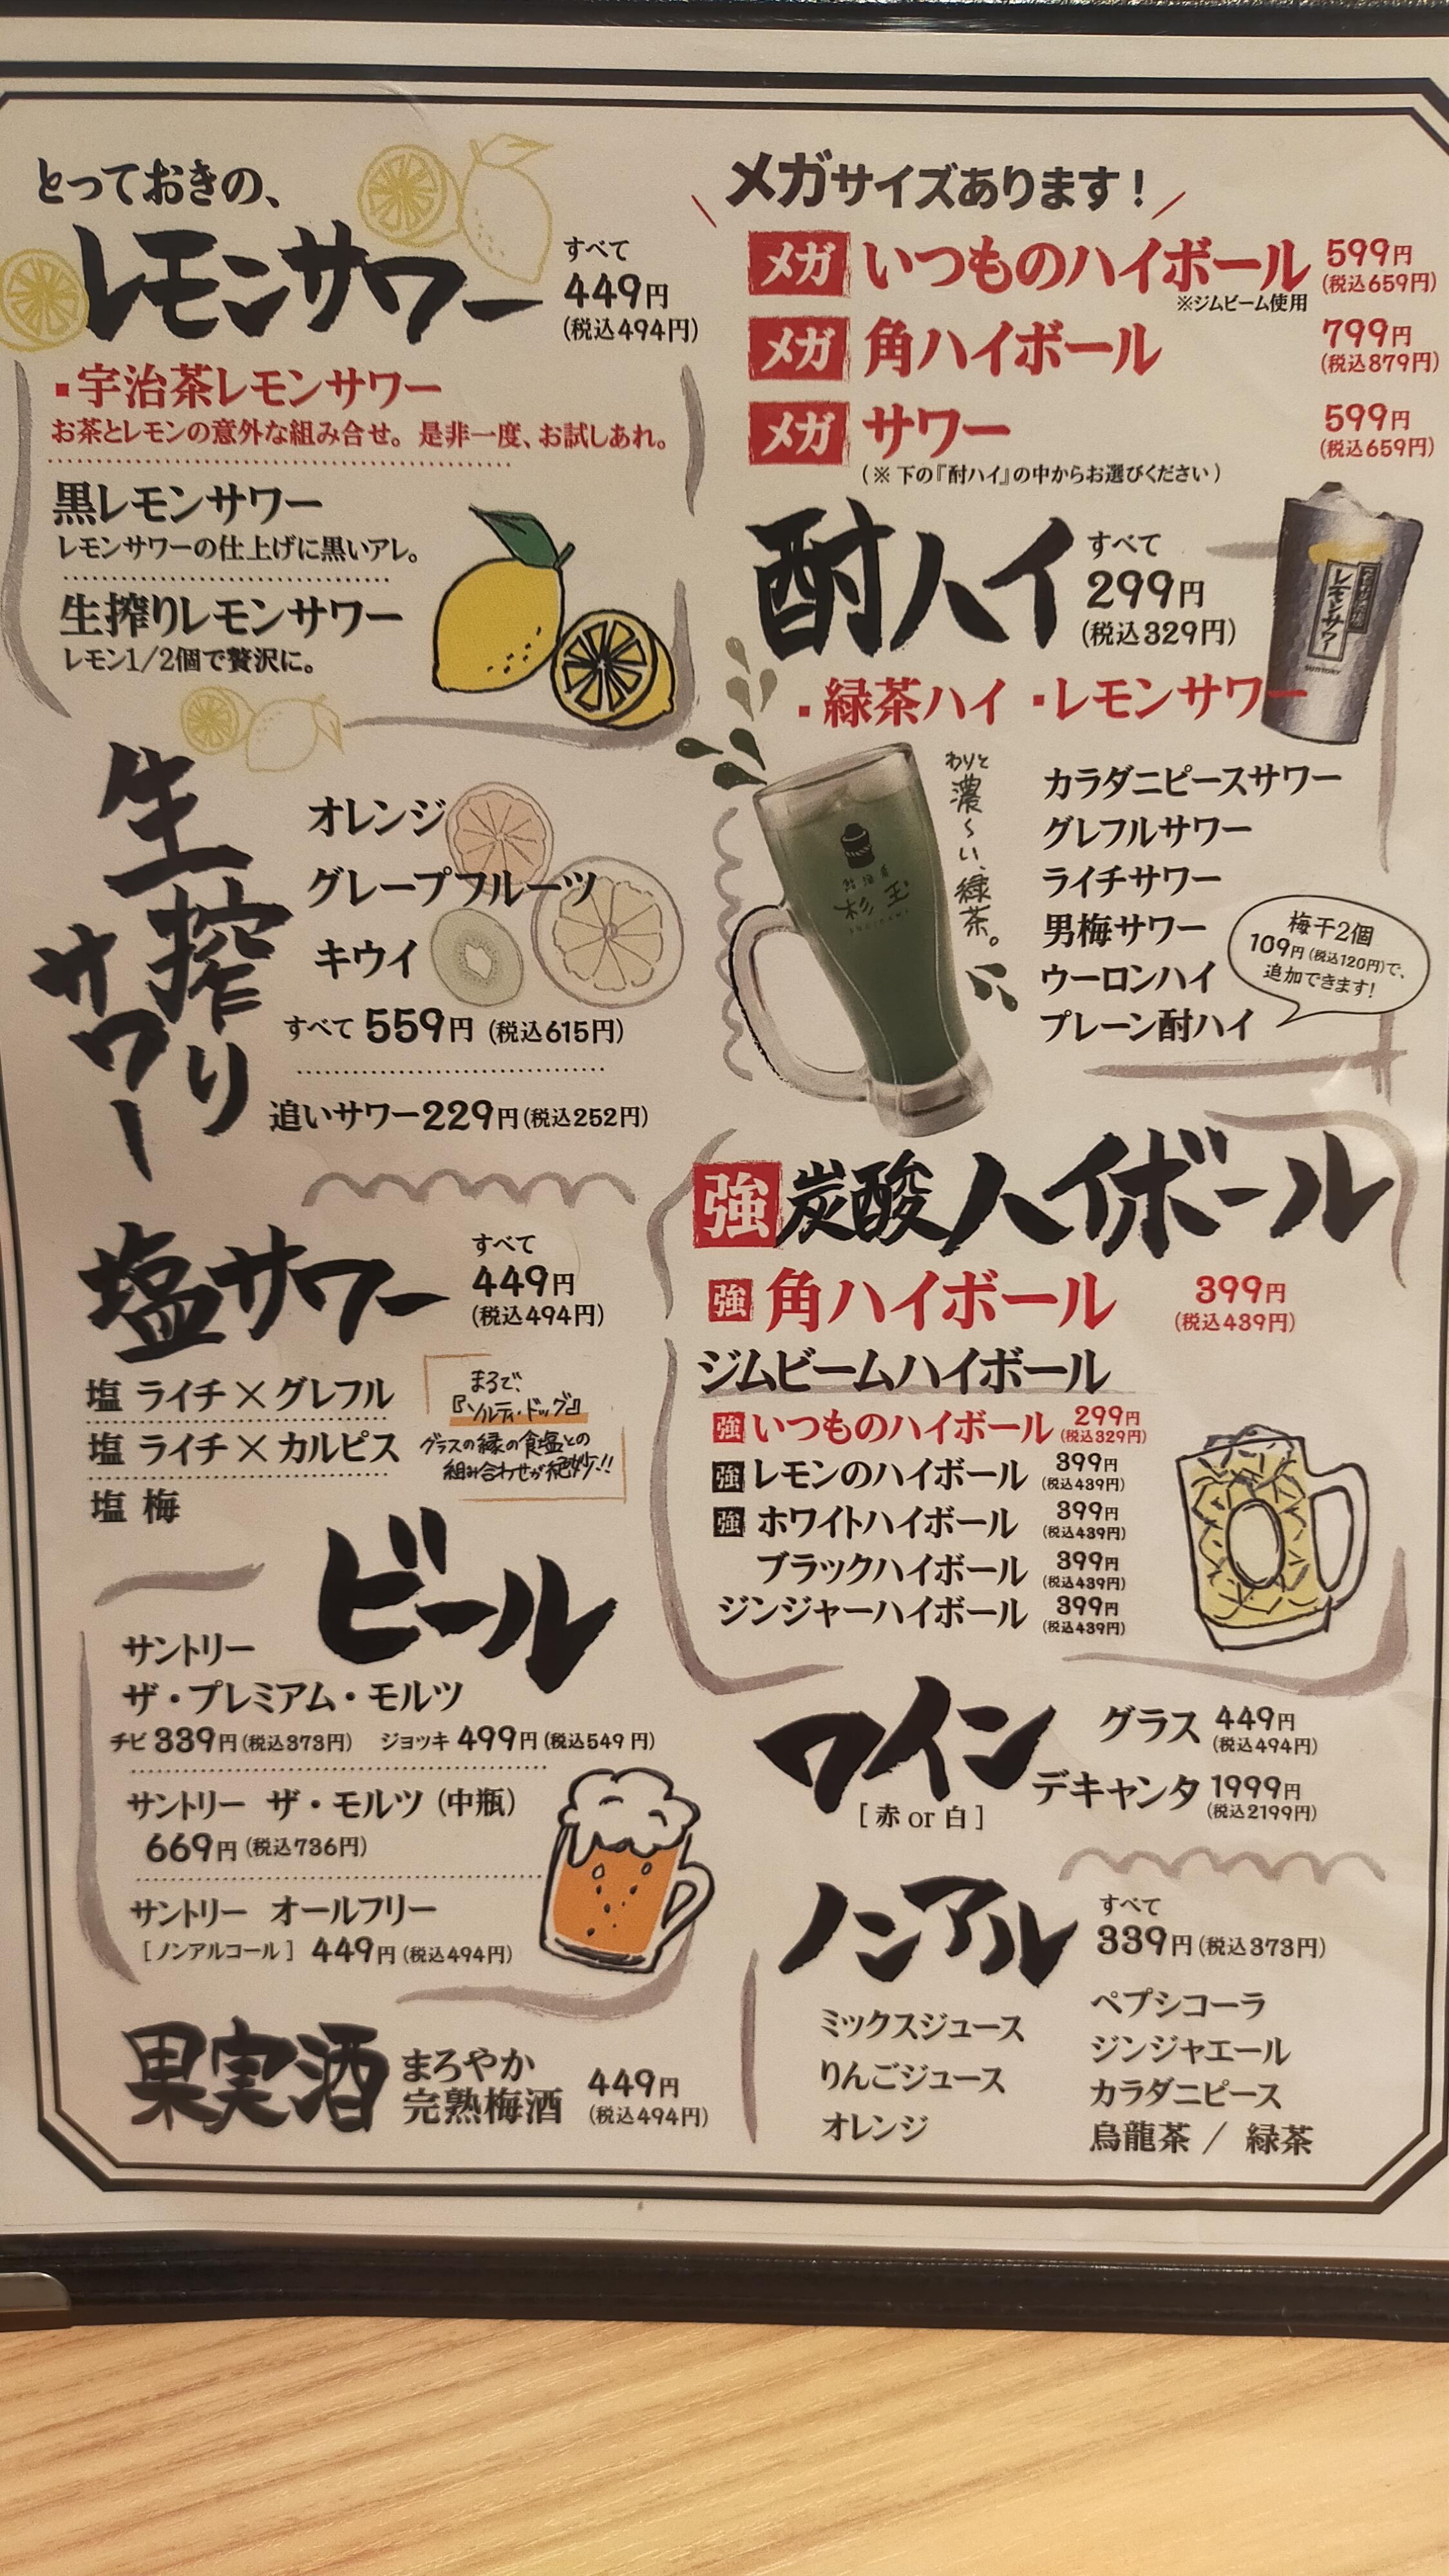 とっておきの、
レモンサワー
すべて
449円
(税込494円)
・宇治茶レモンサワー
お茶とレモンの意外な組み合せ。是非一度、お試しあれ。
黒レモンサワー
レモンサワーの仕上げに黒いアレ。
生搾りレモンサワー
レモン1/2個で贅沢に。
生搾り
サワー
オレンジ
グレープフルーツ
キウイ
すべて 559円 (税込615円)
追いサワー229円(税込252円)
塩サワー
すべて
449円
(税込494円)
塩 ライチ×グレフル
塩 ライチ×カルピス
塩 梅
まるで、
『ソルティ・ドッグ』
グラスの縁の食塩との
組み合わせが絶妙!!
ビール
サントリー
ザ・プレミアム・モルツ
チビ 339円(税込373円) ジョッキ 499円(税込549円)
サントリー ザ・モルツ(中瓶)
669円(税込736円)
サントリー オールフリー
[ノンアルコール] 449円(税込494円)
果実酒
まろやか
完熟梅酒
449円
(税込494円)
メガサイズあります!
メガ いつものハイボール 599円
(税込659円)
※ジムビーム使用
メガ 角ハイボール 799円
(税込879円)
メガ サワー 599円
(税込659円)
(※下の『酎ハイ』の中からお選びください)
酎ハイ
すべて
299円
(税込329円)
・緑茶ハイ ・レモンサワー
レモンサワー
SUNTORY
わりと
濃〜い、緑茶。
杉玉
カラダニピースサワー
グレフルサワー
ライチサワー
男梅サワー
ウーロンハイ
プレーン酎ハイ
梅干2個
109円(税込120円)で、
追加できます!
強炭酸ハイボール
強 角ハイボール 399円
(税込439円)
ジムビームハイボール
強 いつものハイボール 299円
(税込329円)
強 レモンのハイボール 399円
(税込439円)
強 ホワイトハイボール 399円
(税込439円)
ブラックハイボール 399円
(税込439円)
ジンジャーハイボール 399円
(税込439円)
ワイン
[赤 or 白]
グラス 449円
(税込494円)
デキャンタ 1999円
(税込2199円)
ノンアル
すべて
339円(税込373円)
ミックスジュース
りんごジュース
オレンジ
ペプシコーラ
ジンジャエール
カラダニピース
烏龍茶 / 緑茶